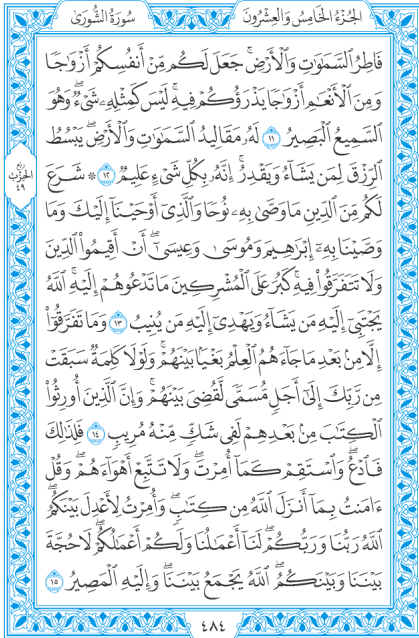 الجُزْءُ الخَامِسُ وَالعِشْرُونَ
سُورَةُ الشُّورَىٰ
فَاطِرُ السَّمَٰوَٰتِ وَالْأَرْضِ ۚ جَعَلَ لَكُم مِّنْ أَنفُسِكُمْ أَزْوَٰجًا
وَمِنَ الْأَنْعَٰمِ أَزْوَٰجًا يَذْرَؤُكُمْ فِيهِ ۚ لَيْسَ كَمِثْلِهِۦ شَىْءٌ ۖ وَهُوَ
السَّمِيعُ الْبَصِيرُ ١١ لَهُۥ مَقَالِيدُ السَّمَٰوَٰتِ وَالْأَرْضِ ۖ يَبْسُطُ
الرِّزْقَ لِمَن يَشَآءُ وَيَقْدِرُ ۚ إِنَّهُۥ بِكُلِّ شَىْءٍ عَلِيمٌ ١٢ ۞ شَرَعَ
رُبْع الحِزْبِ ٤٩
لَكُم مِّنَ الدِّينِ مَا وَصَّىٰ بِهِۦ نُوحًا وَالَّذِىٓ أَوْحَيْنَآ إِلَيْكَ وَمَا
وَصَّيْنَا بِهِۦٓ إِبْرَٰهِيمَ وَمُوسَىٰ وَعِيسَىٰٓ ۖ أَنْ أَقِيمُوا۟ الدِّينَ
وَلَا تَتَفَرَّقُوا۟ فِيهِ ۚ كَبُرَ عَلَى الْمُشْرِكِينَ مَا تَدْعُوهُمْ إِلَيْهِ ۚ اللَّهُ
يَجْتَبِىٓ إِلَيْهِ مَن يَشَآءُ وَيَهْدِىٓ إِلَيْهِ مَن يُنِيبُ ١٣ وَمَا تَفَرَّقُوٓا۟
إِلَّا مِنۢ بَعْدِ مَا جَآءَهُمُ الْعِلْمُ بَغْيًۢا بَيْنَهُمْ ۚ وَلَوْلَا كَلِمَةٌ سَبَقَتْ
مِن رَّبِّكَ إِلَىٰٓ أَجَلٍ مُّسَمًّى لَّقُضِىَ بَيْنَهُمْ ۚ وَإِنَّ الَّذِينَ أُورِثُوا۟
الْكِتَٰبَ مِنۢ بَعْدِهِمْ لَفِى شَكٍّ مِّنْهُ مُرِيبٍ ١٤ فَلِذَٰلِكَ
فَادْعُ ۖ وَاسْتَقِمْ كَمَآ أُمِرْتَ ۖ وَلَا تَتَّبِعْ أَهْوَآءَهُمْ ۖ وَقُلْ
ءَامَنتُ بِمَآ أَنزَلَ اللَّهُ مِن كِتَٰبٍ ۖ وَأُمِرْتُ لِأَعْدِلَ بَيْنَكُمُ ۖ
اللَّهُ رَبُّنَا وَرَبُّكُمْ ۖ لَنَآ أَعْمَٰلُنَا وَلَكُمْ أَعْمَٰلُكُمْ ۖ لَا حُجَّةَ
بَيْنَنَا وَبَيْنَكُمُ ۖ اللَّهُ يَجْمَعُ بَيْنَنَا ۖ وَإِلَيْهِ الْمَصِيرُ ١٥
٤٨٤